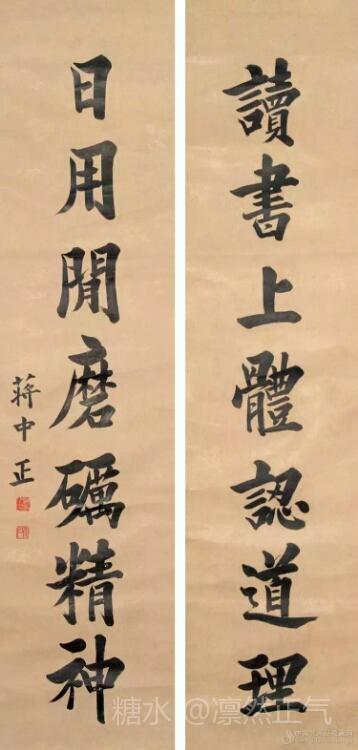 讀書上體認道理
日用間磨礪精神
蔣中正
糖水 @凛然正气